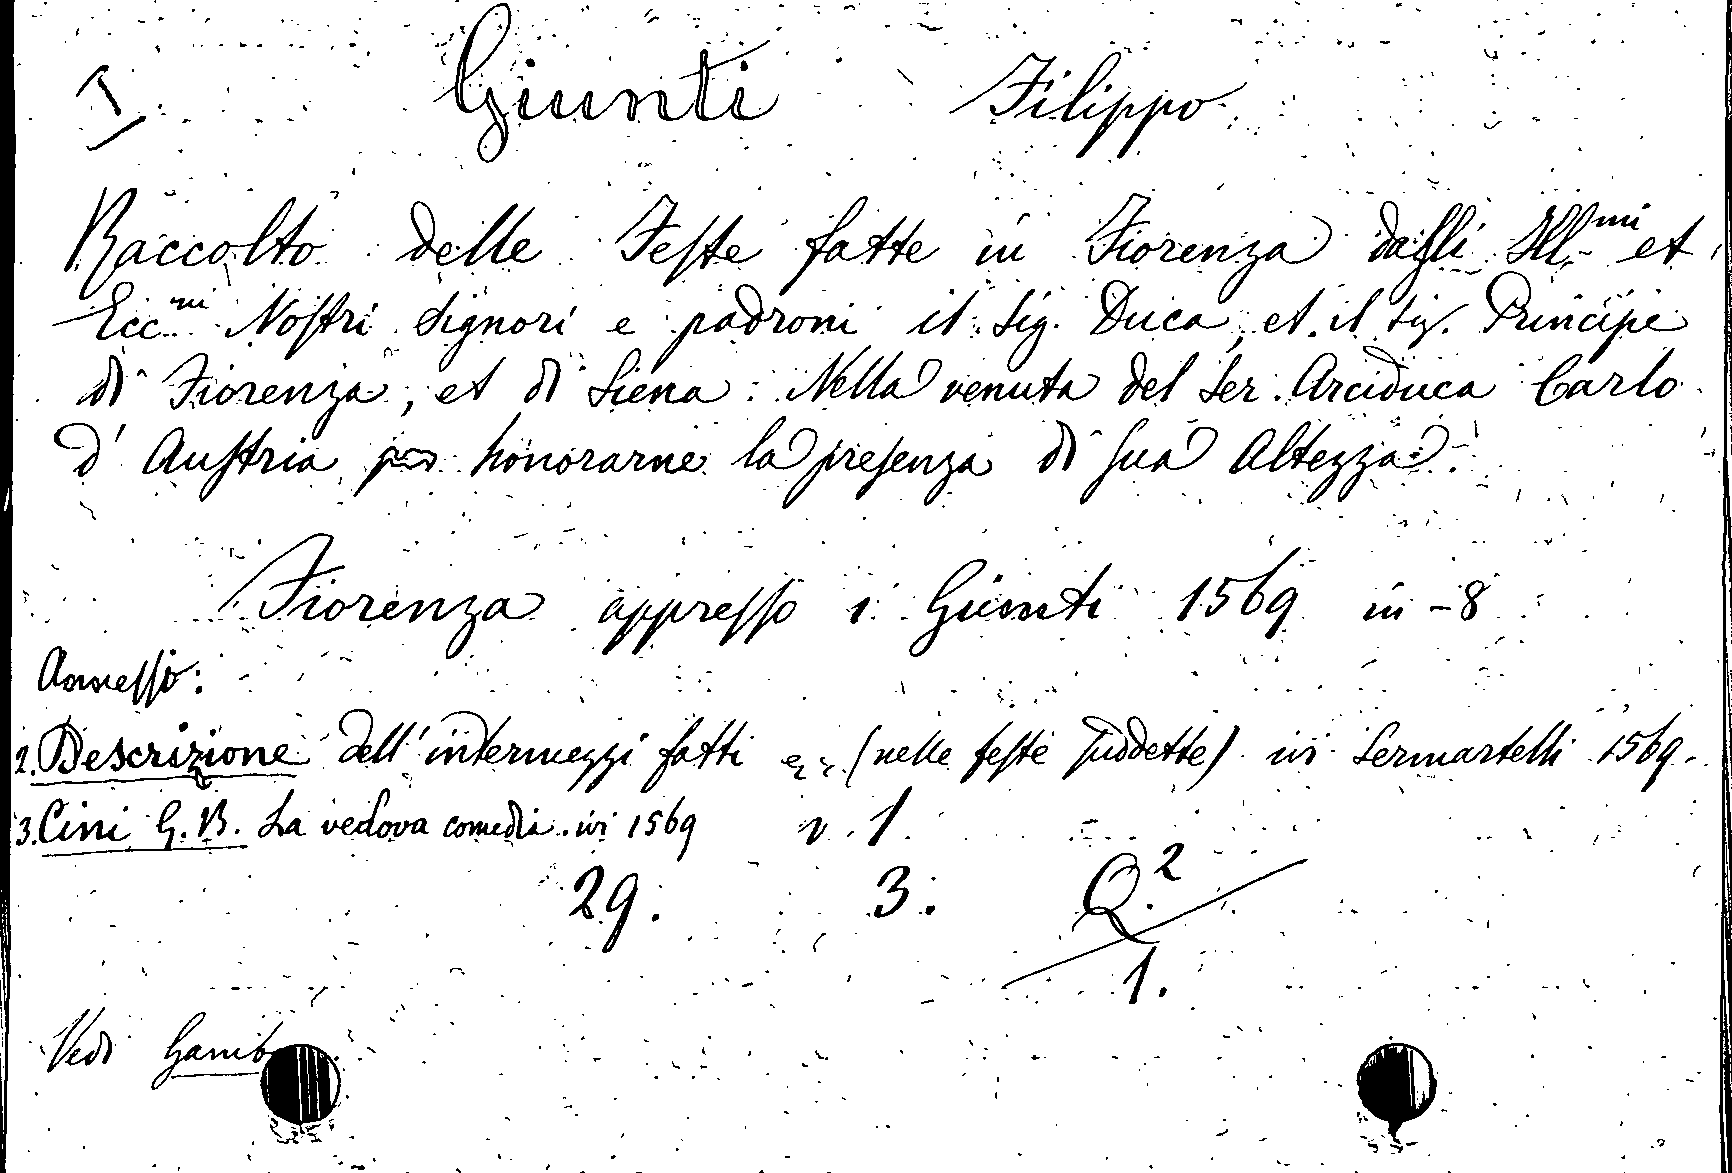 I Giunti Filippo
Raccolto delle Feste fatte in Fiorenza dagli Ill.mi et
Ecc.mi Nostri Signori e padroni il Sig. Duca, et il Sig. Principe
di Fiorenza, et di Siena: Nella venuta del Ser. Arciduca Carlo
d' Austria per honorarne la presenza di sua Altezza.
Fiorenza appresso i Giunti 1569 in-8
Annesso:
2. Descrizione dell' intermezzi fatti (nelle feste suddette) ivi Sermartelli 1569.
3. Cini G. B. La vedova comedia. ivi 1569 v. 1.
29. 3. Q.2
1.
Vedi